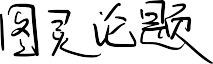 图灵论题